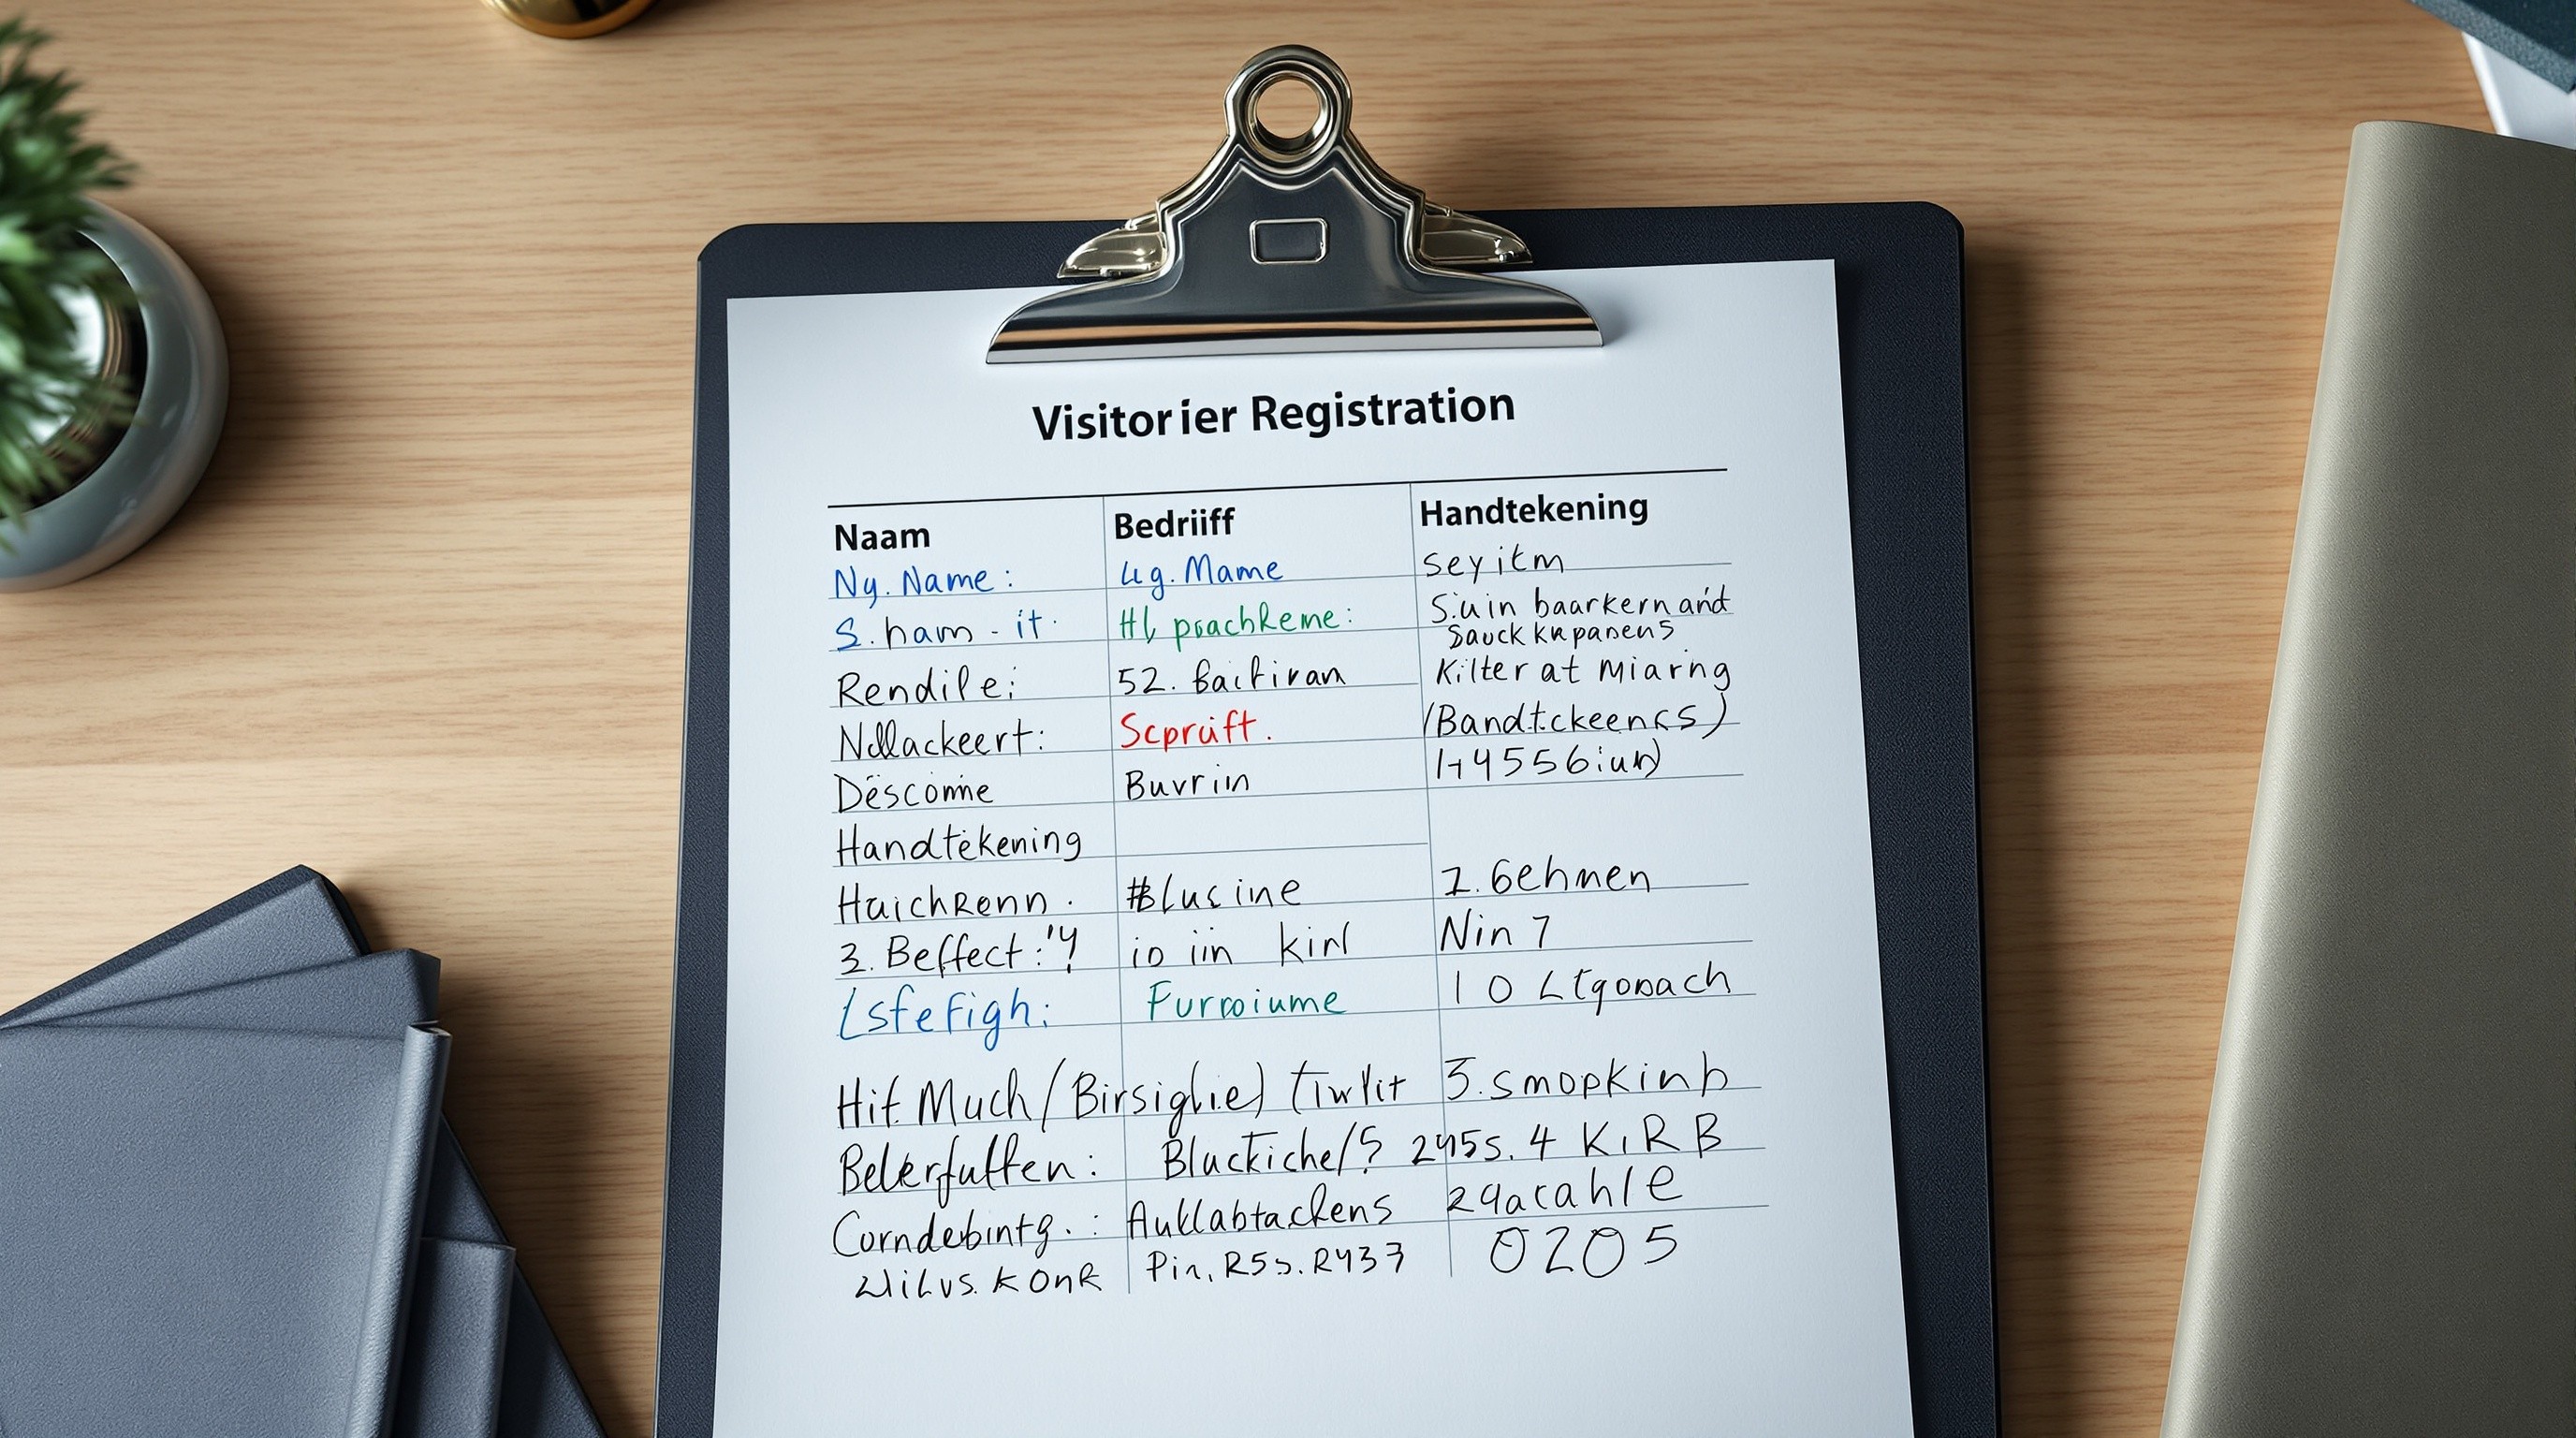 Visitorier Registration
Naam Bedriiff Handtekening
Ny. Name: 4g. Mame seyitm
S. ham - it. Hl psachkeme: S.uin baarkern and
Sauck kupanens
Rendile: 52. Bacfivan Kilter at Miarng
Ndlackeert: Scpruift. (Bandtckeencs)
Descome Buvrin 1+4556iun)
Handtekening
Huichkenn. #lucine 1. Gehmen
3. Beffect: io iin kirl Nin 7
Lsfefigh: Furoiume 10 Ltgonach
Hif. Much (Birsiglie) 3. smopkinb
Bekerfuffen: Bluckiche/? 2455. 4 KiRB
Corndebintg.: Auklabtackens 24acahle
KOnR Pin. R5s. R437 0205